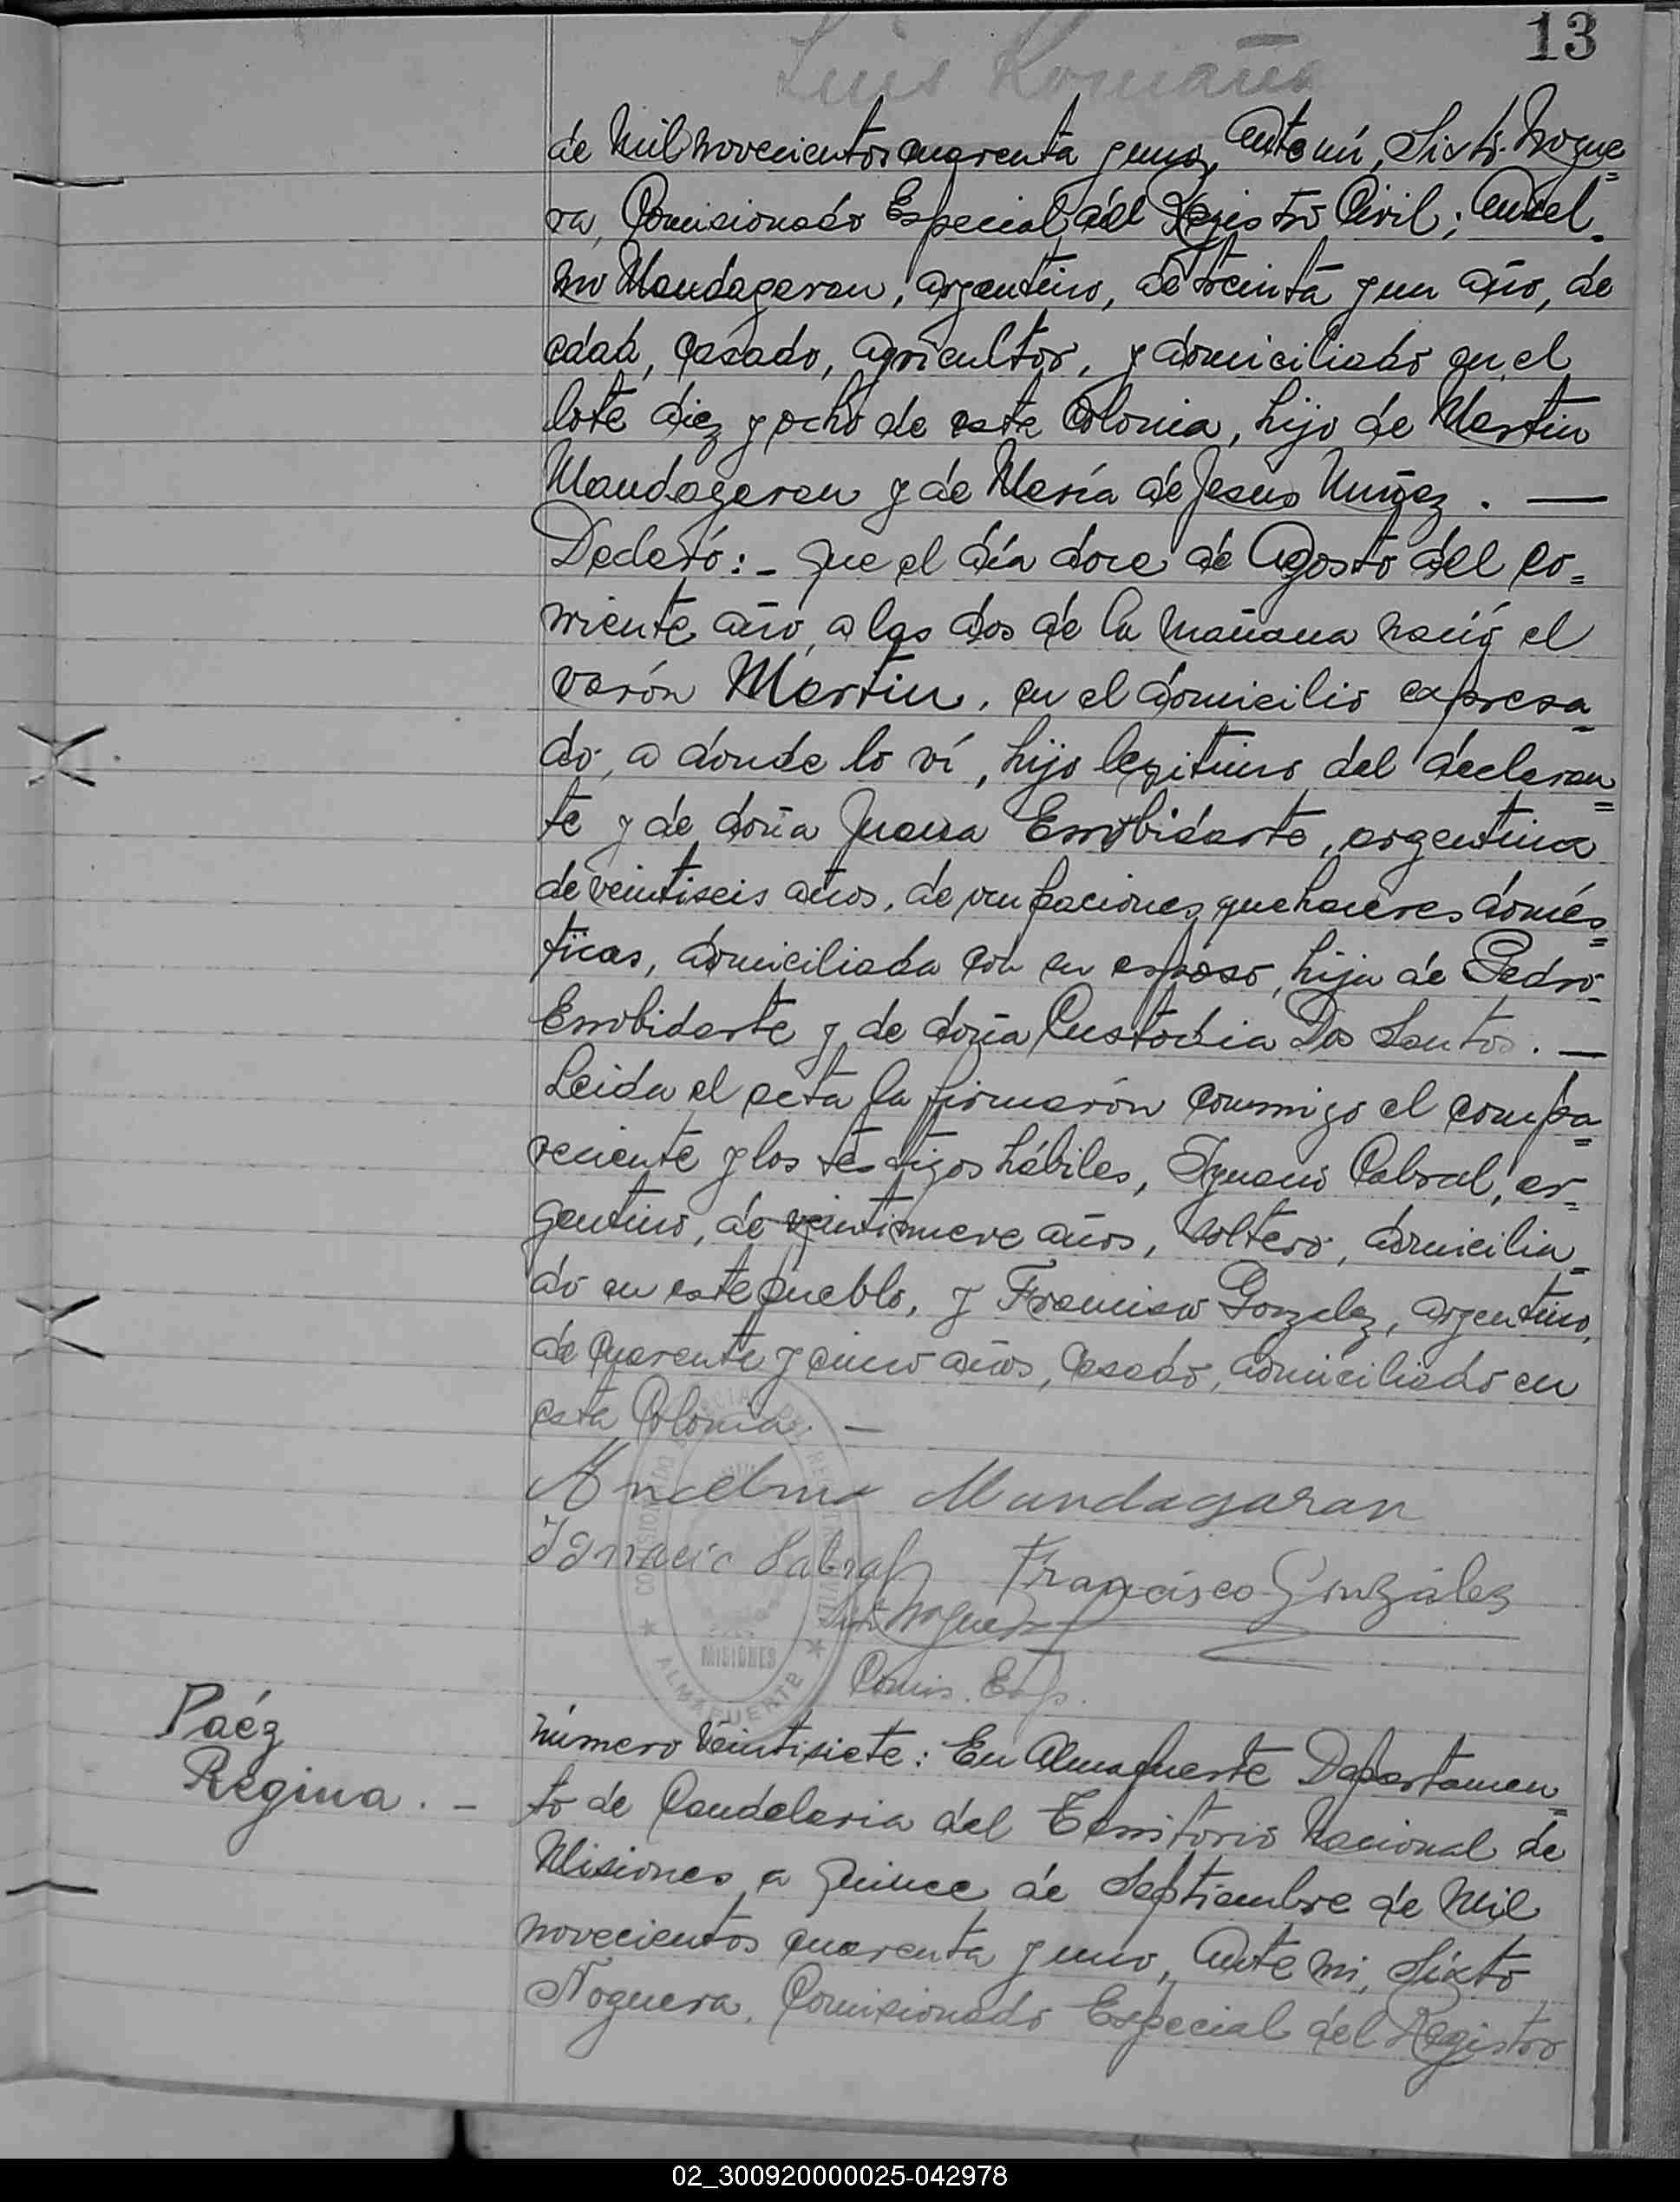 13
Luis Romaña
de Mil novecientos cuarenta y uno, Ante mí, Sixto Nogue=
ra, Comisionado Especial del Registro Civil; Ancel-
mo Mandagaran, argentino, de treinta y un año, de
edad, casado, agricultor, y domiciliado en el
lote diez y ocho de esta Colonia, hijo de Martin
Mandagaran y de María de Jesus Nuñez. —
Declaró:- Que el día doce de Agosto del co=
rriente año, a las dos de la mañana nació el
varón Martin, en el domicilio expresa=
do, a donde lo ví, hijo legitimo del declaran=
te y de doña Juana Errobidarte, argentina
de veintiseis años, de ocupaciones quehaceres domés=
ticas, domiciliada con su esposo, hija de Pedro
Errobidarte y de doña Custodia Dos Santos. —
Leida el acta la firmarón conmigo el compa=
reciente y los testigos hábiles, Ignacio Cabral, ar=
gentino, de veintinueve años, soltero, domicilia=
do en este pueblo, y Francisco Gonzalez, argentino,
de cuarenta y cinco años, casado, domiciliado en
esta Colonia. —
Ancelmo Mandagaran
Ignacio Cabral Francisco González
Sixto Noguera
Comis. Esp.
COMISIONADO ESPECIAL DEL REGISTRO CIVIL
MISIONES
ALMAFUERTE
Paéz
Regina. -
número Veintisiete: En Almafuerte Departamen=
to de Candelaria del Territorio Nacional de
Misiones a quince de Septiembre de Mil
novecientos cuarenta y uno, Ante mi, Sixto
Noguera, Comisionado Especial del Registro
02_300920000025-042978